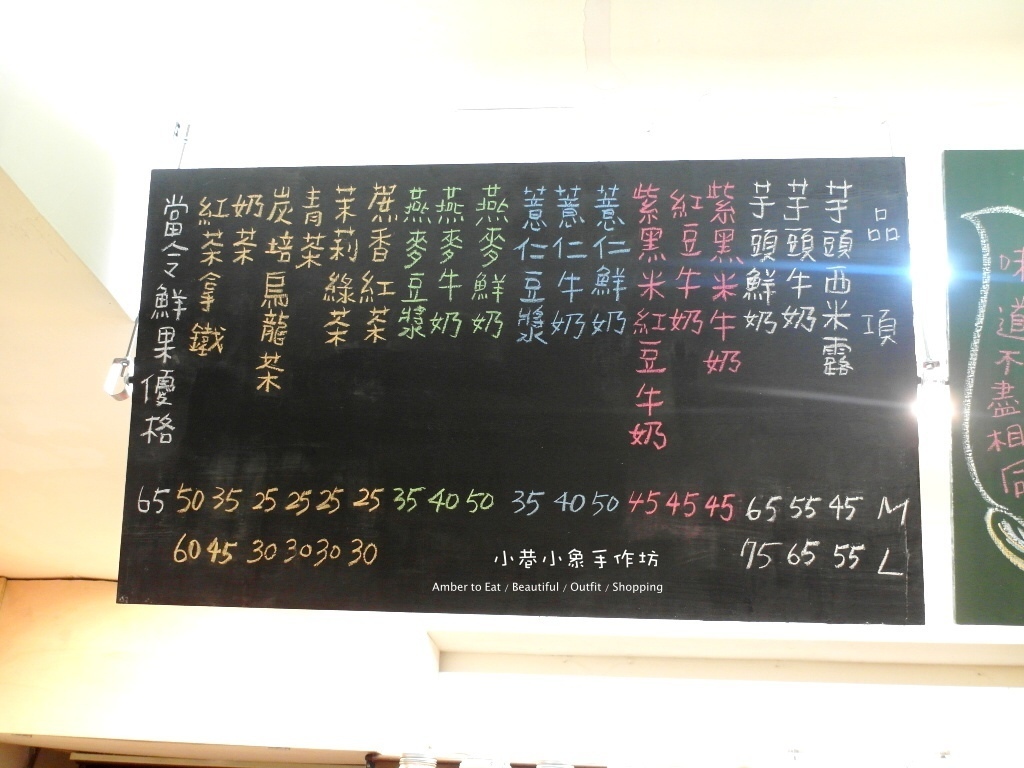 品項 M L
芋頭西米露 45 55
芋頭牛奶 55 65
芋頭鮮奶 65 75
紫黑米牛奶 45
紅豆牛奶 45
紫黑米紅豆牛奶 45
薏仁鮮奶 50
薏仁牛奶 40
薏仁豆漿 35
燕麥鮮奶 50
燕麥牛奶 40
燕麥豆漿 35
蔗香紅茶 25 30
茉莉綠茶 25 30
青茶 25 30
炭培烏龍茶 25 30
奶茶 35 45
紅茶拿鐵 50 60
當令鮮果優格 65
小巷小象手作坊
Amber to Eat / Beautiful / Outfit / Shopping
味道不盡相同